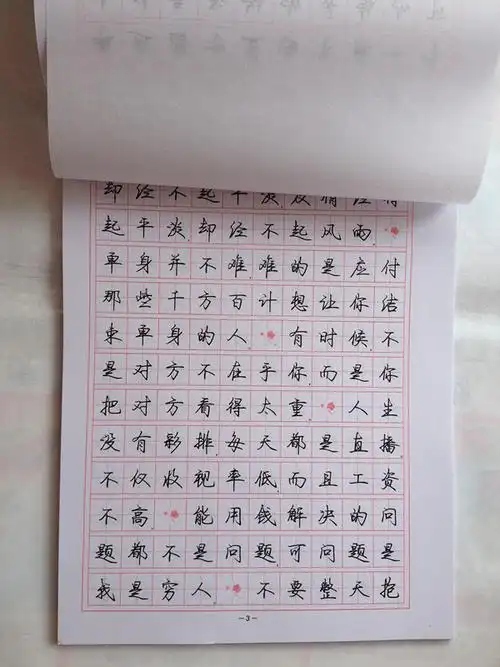 却经不起平淡
起平淡却经不起风雨
单身并不难难的是应付
那些千方百计想让你结
束单身的人 有时候不
是对方不在乎你而是你
把对方看得太重 人生
没有彩排每天都是直播
不仅收视率低而且工资
不高 能用钱解决的问
题都不是问题可问题是
我是穷人 不要整天抱
-3-